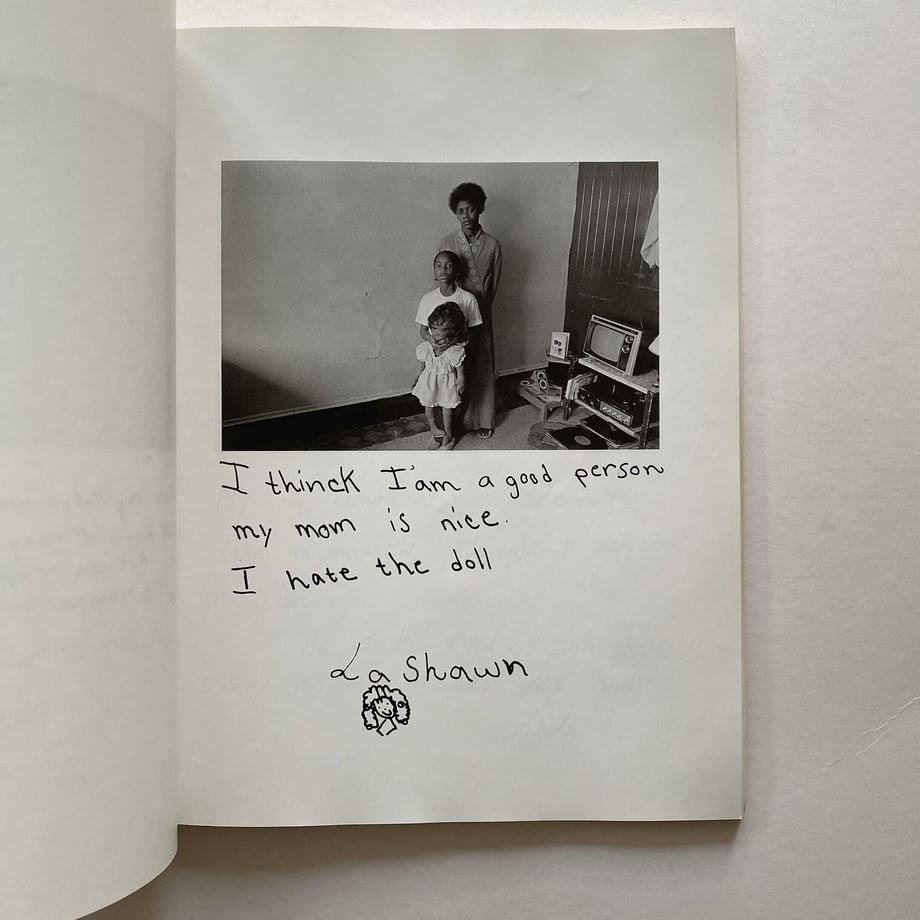 I thinck I'am a good person
my mom is nice.
I hate the doll
LaShawn